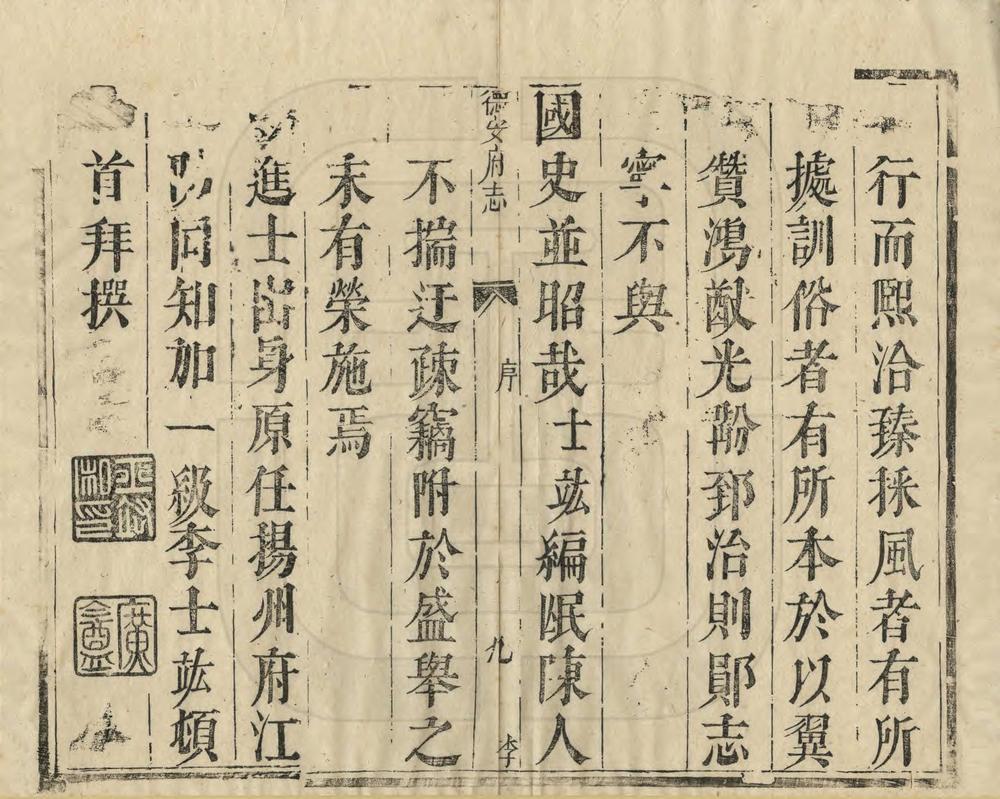 行而熙洽臻採風者有所
據訓俗者有所本於以翼
贊鴻猷光黼郅治則鄖志
寧不與
國史並昭哉士竑編眠陳人
德安府志
序
九
李
不揣迂疎竊附於盛舉之
末有榮施焉
進士出身原任揚州府江
防同知加一級李士竑頓
首拜撰